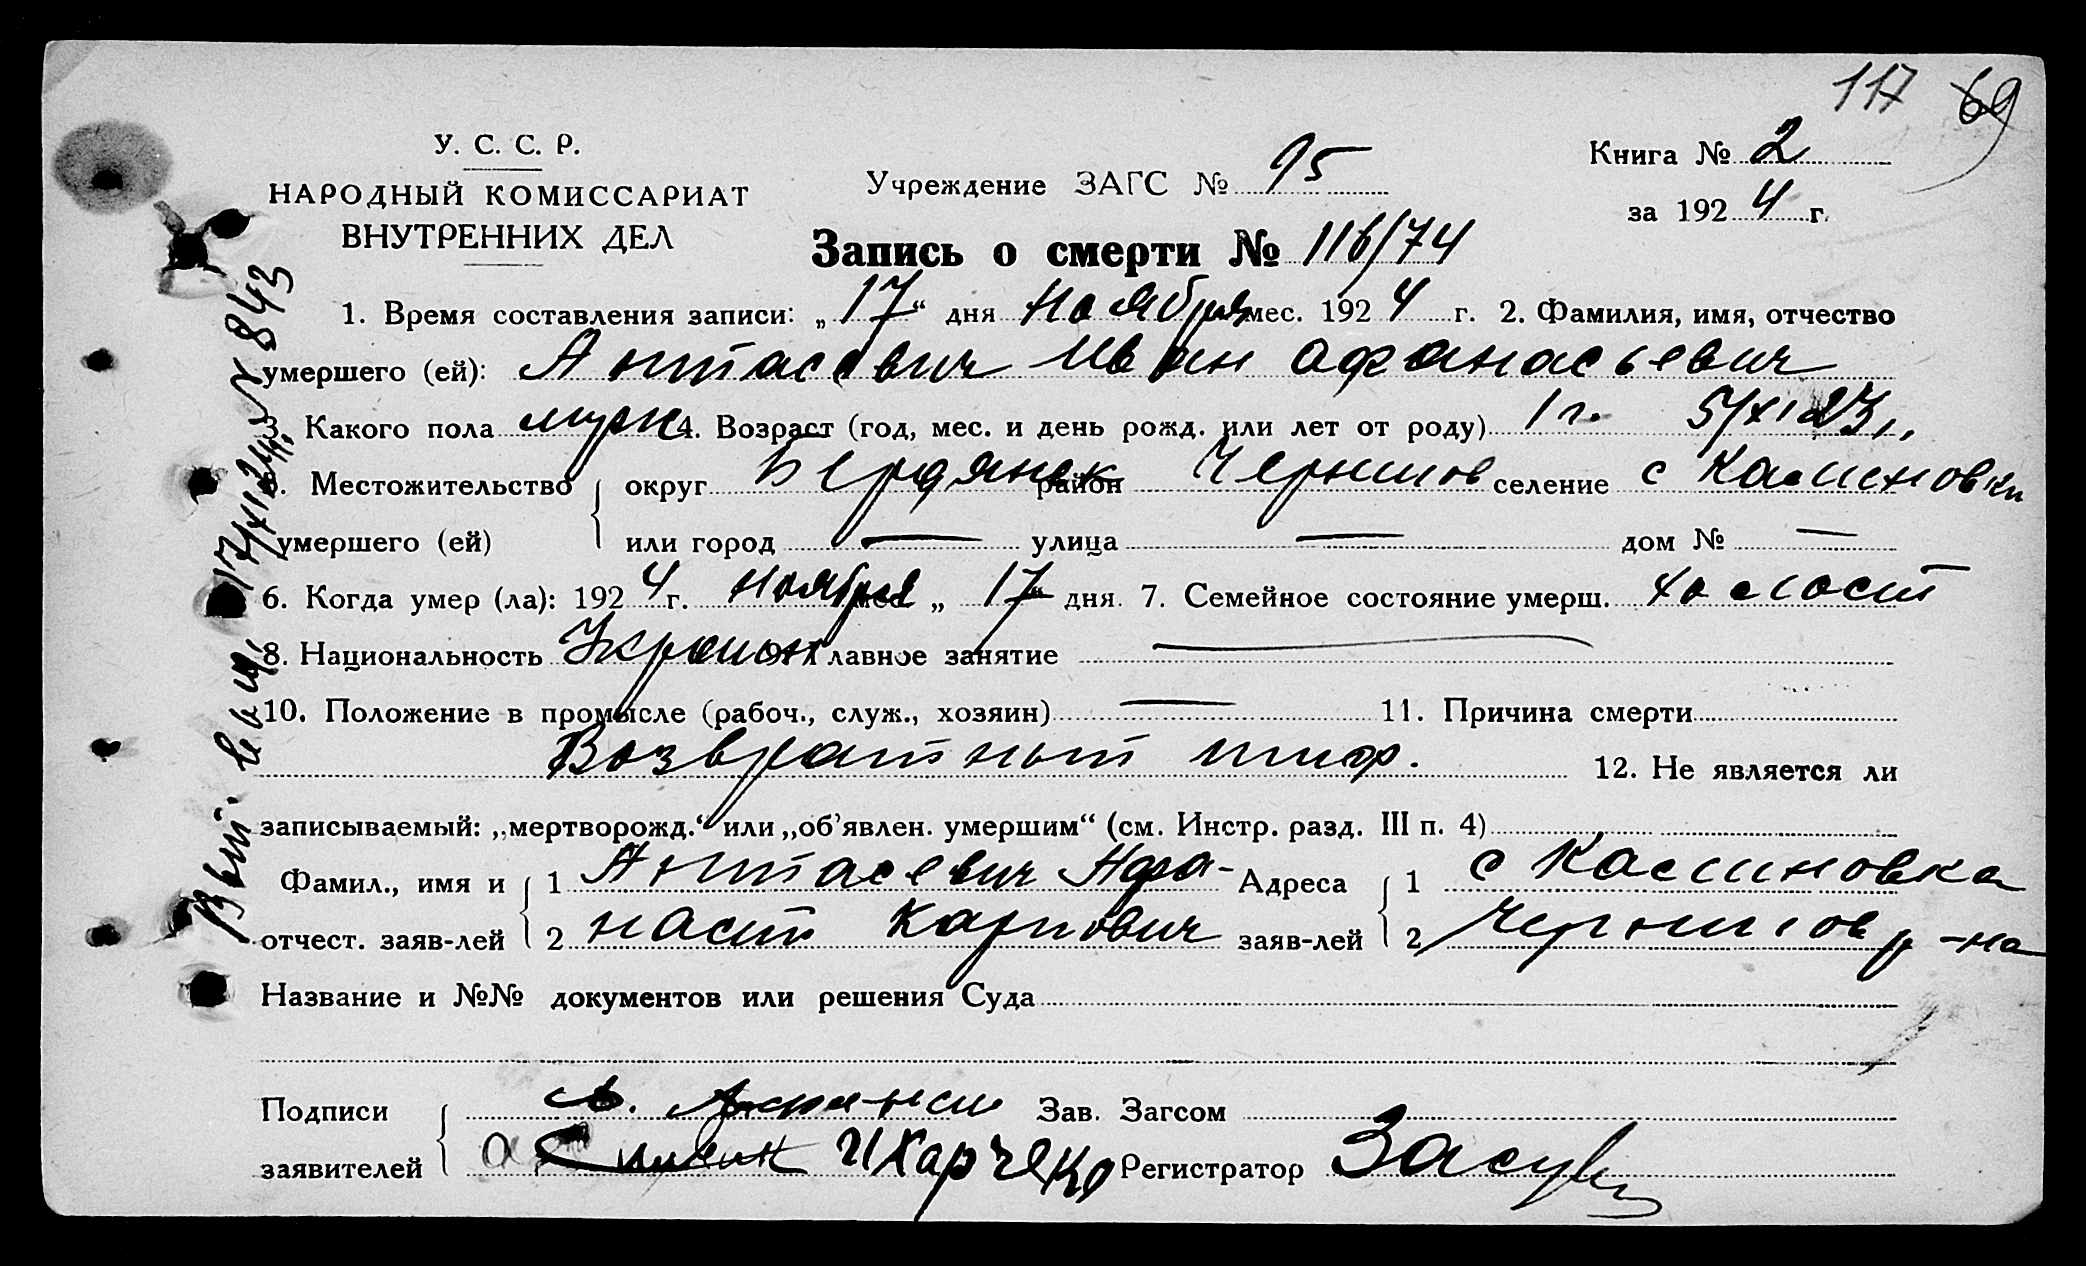 117 69
У. С. С. Р.
НАРОДНЫЙ КОМИССАРИАТ
ВНУТРЕННИХ ДЕЛ
Учреждение ЗАГС № 95
Книга № 2
за 1924 г.
Запись о смерти № 116/74
1. Время составления записи: „17“ дня Ноября мес. 1924 г. 2. Фамилия, имя, отчество
умершего (ей): Антасевич Иван Афанасьевич
3. Какого пола муж 4. Возраст (год, мес. и день рожд. или лет от роду) 1 г. 5/XI 23 г.
5. Местожительство округ Бердянск район Черниговс селение с Калиновки
умершего (ей) или город — улица — дом № —
6. Когда умер (ла): 1924 г. Ноября мес. „17“ дня. 7. Семейное состояние умерш. холост
8. Национальность Украин 9. Главное занятие —
10. Положение в промысле (рабоч., служ., хозяин) — 11. Причина смерти
Возвратный тиф.
12. Не является ли
записываемый: „мертворожд.“ или „об’явлен. умершим“ (см. Инстр. разд. III п. 4)
Фамил., имя и 1 Антасевич Афа- Адреса 1 с Калиновка
отчест. заяв-лей 2 насий Карпович заяв-лей 2 Чернигов р-на
Название и №№ документов или решения Суда
Подписи Зав. Загсом
заявителей Харченко Регистратор
17/XI 24 г. № 843